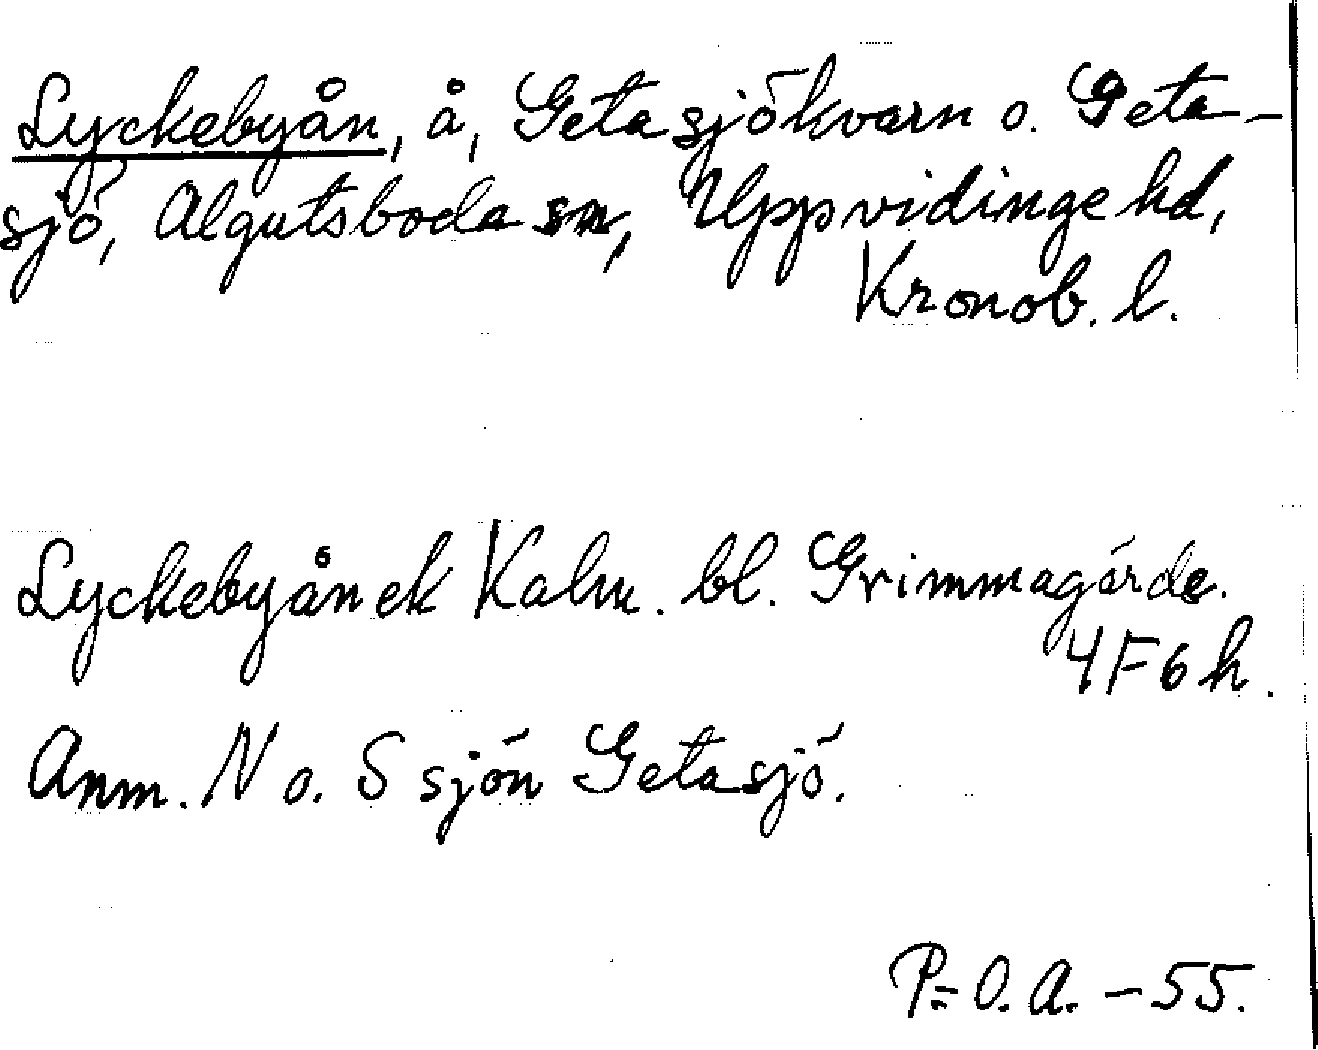 Lyckebyån, å, Getasjökvarn o. Geta-
sjö, Algutsboda sn, Uppvidinge hd,
Kronob. l.
Lyckebyån ek Kalm. bl. Grimmagärde.
4F6h.
Anm. N o. S sjön Getasjö.
P=O.A. -55.